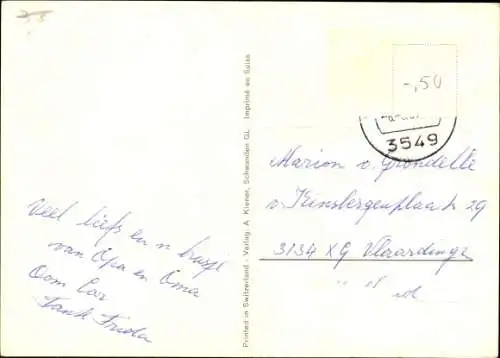 -,50
3549
Marion v. Grondelle
v. Kinsbergenplaats 29
3134 XG Vlaardingen
Veel liefs en n
van Opa en Oma
Oom Cor
Tante Frieda
Printed in Switzerland - Verlag A. Kiener, Schwanden GL Imprimé en Suisse